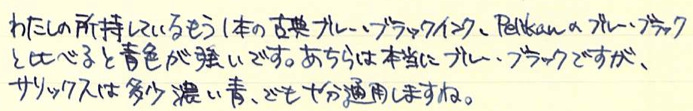 わたしの所持しているもう1本の古典ブルー・ブラックインク、Pelikanのブルー・ブラック
と比べると青色が強いです。あちらは本当にブルー・ブラックですが、
サリックスは多少濃い青、でも十分通用しますね。